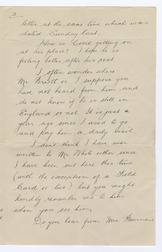 letter at the same time which was
dated Sunday last.
How is Cecil getting on
at his place? I hope he is
feeling better after his rest
I often wonder where
Mr is I suppose you
had not heard from him and
do not know if he is still in
England or not. It is just a
year ago since I used to go
and pay him a daily visit
I don't think I have ever
written to Mr White either since
I have been out here this time
(with the exception of a Field
Card or two) but you might
kindly remember me to him
when you see him.
Do you hear from Mrs